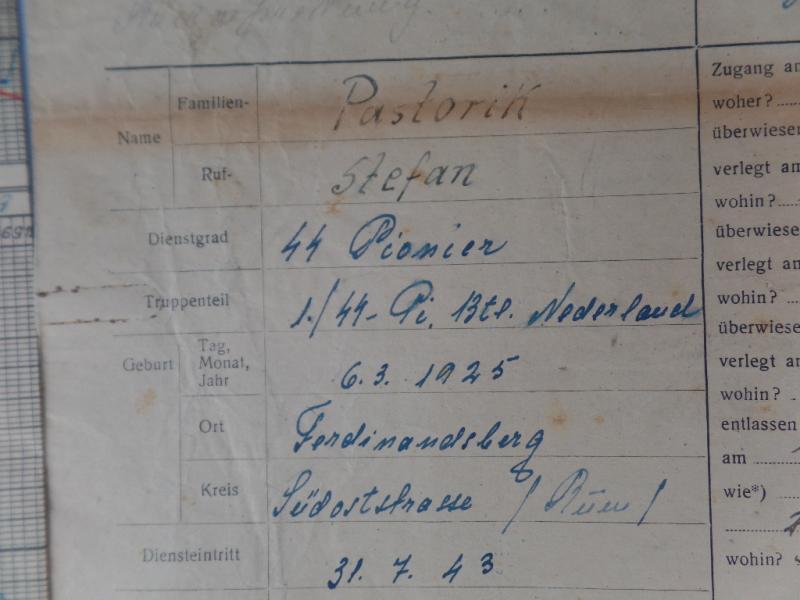 Familien- Pastorik
Name
Ruf- Stefan
Dienstgrad 44 Pionier
Truppenteil 1./44- Pi. Btl. Nederland
Geburt Tag, Monat, Jahr 6. 3. 1925
Ort Ferdinandsberg
Kreis Südoststrasse /
Diensteintritt 31. 7. 43
Zugang am
woher?
überwiesen
verlegt am
wohin?
überwiesen
verlegt am
wohin?
überwiesen
verlegt an
wohin?
entlassen
am
wie*)
wohin?